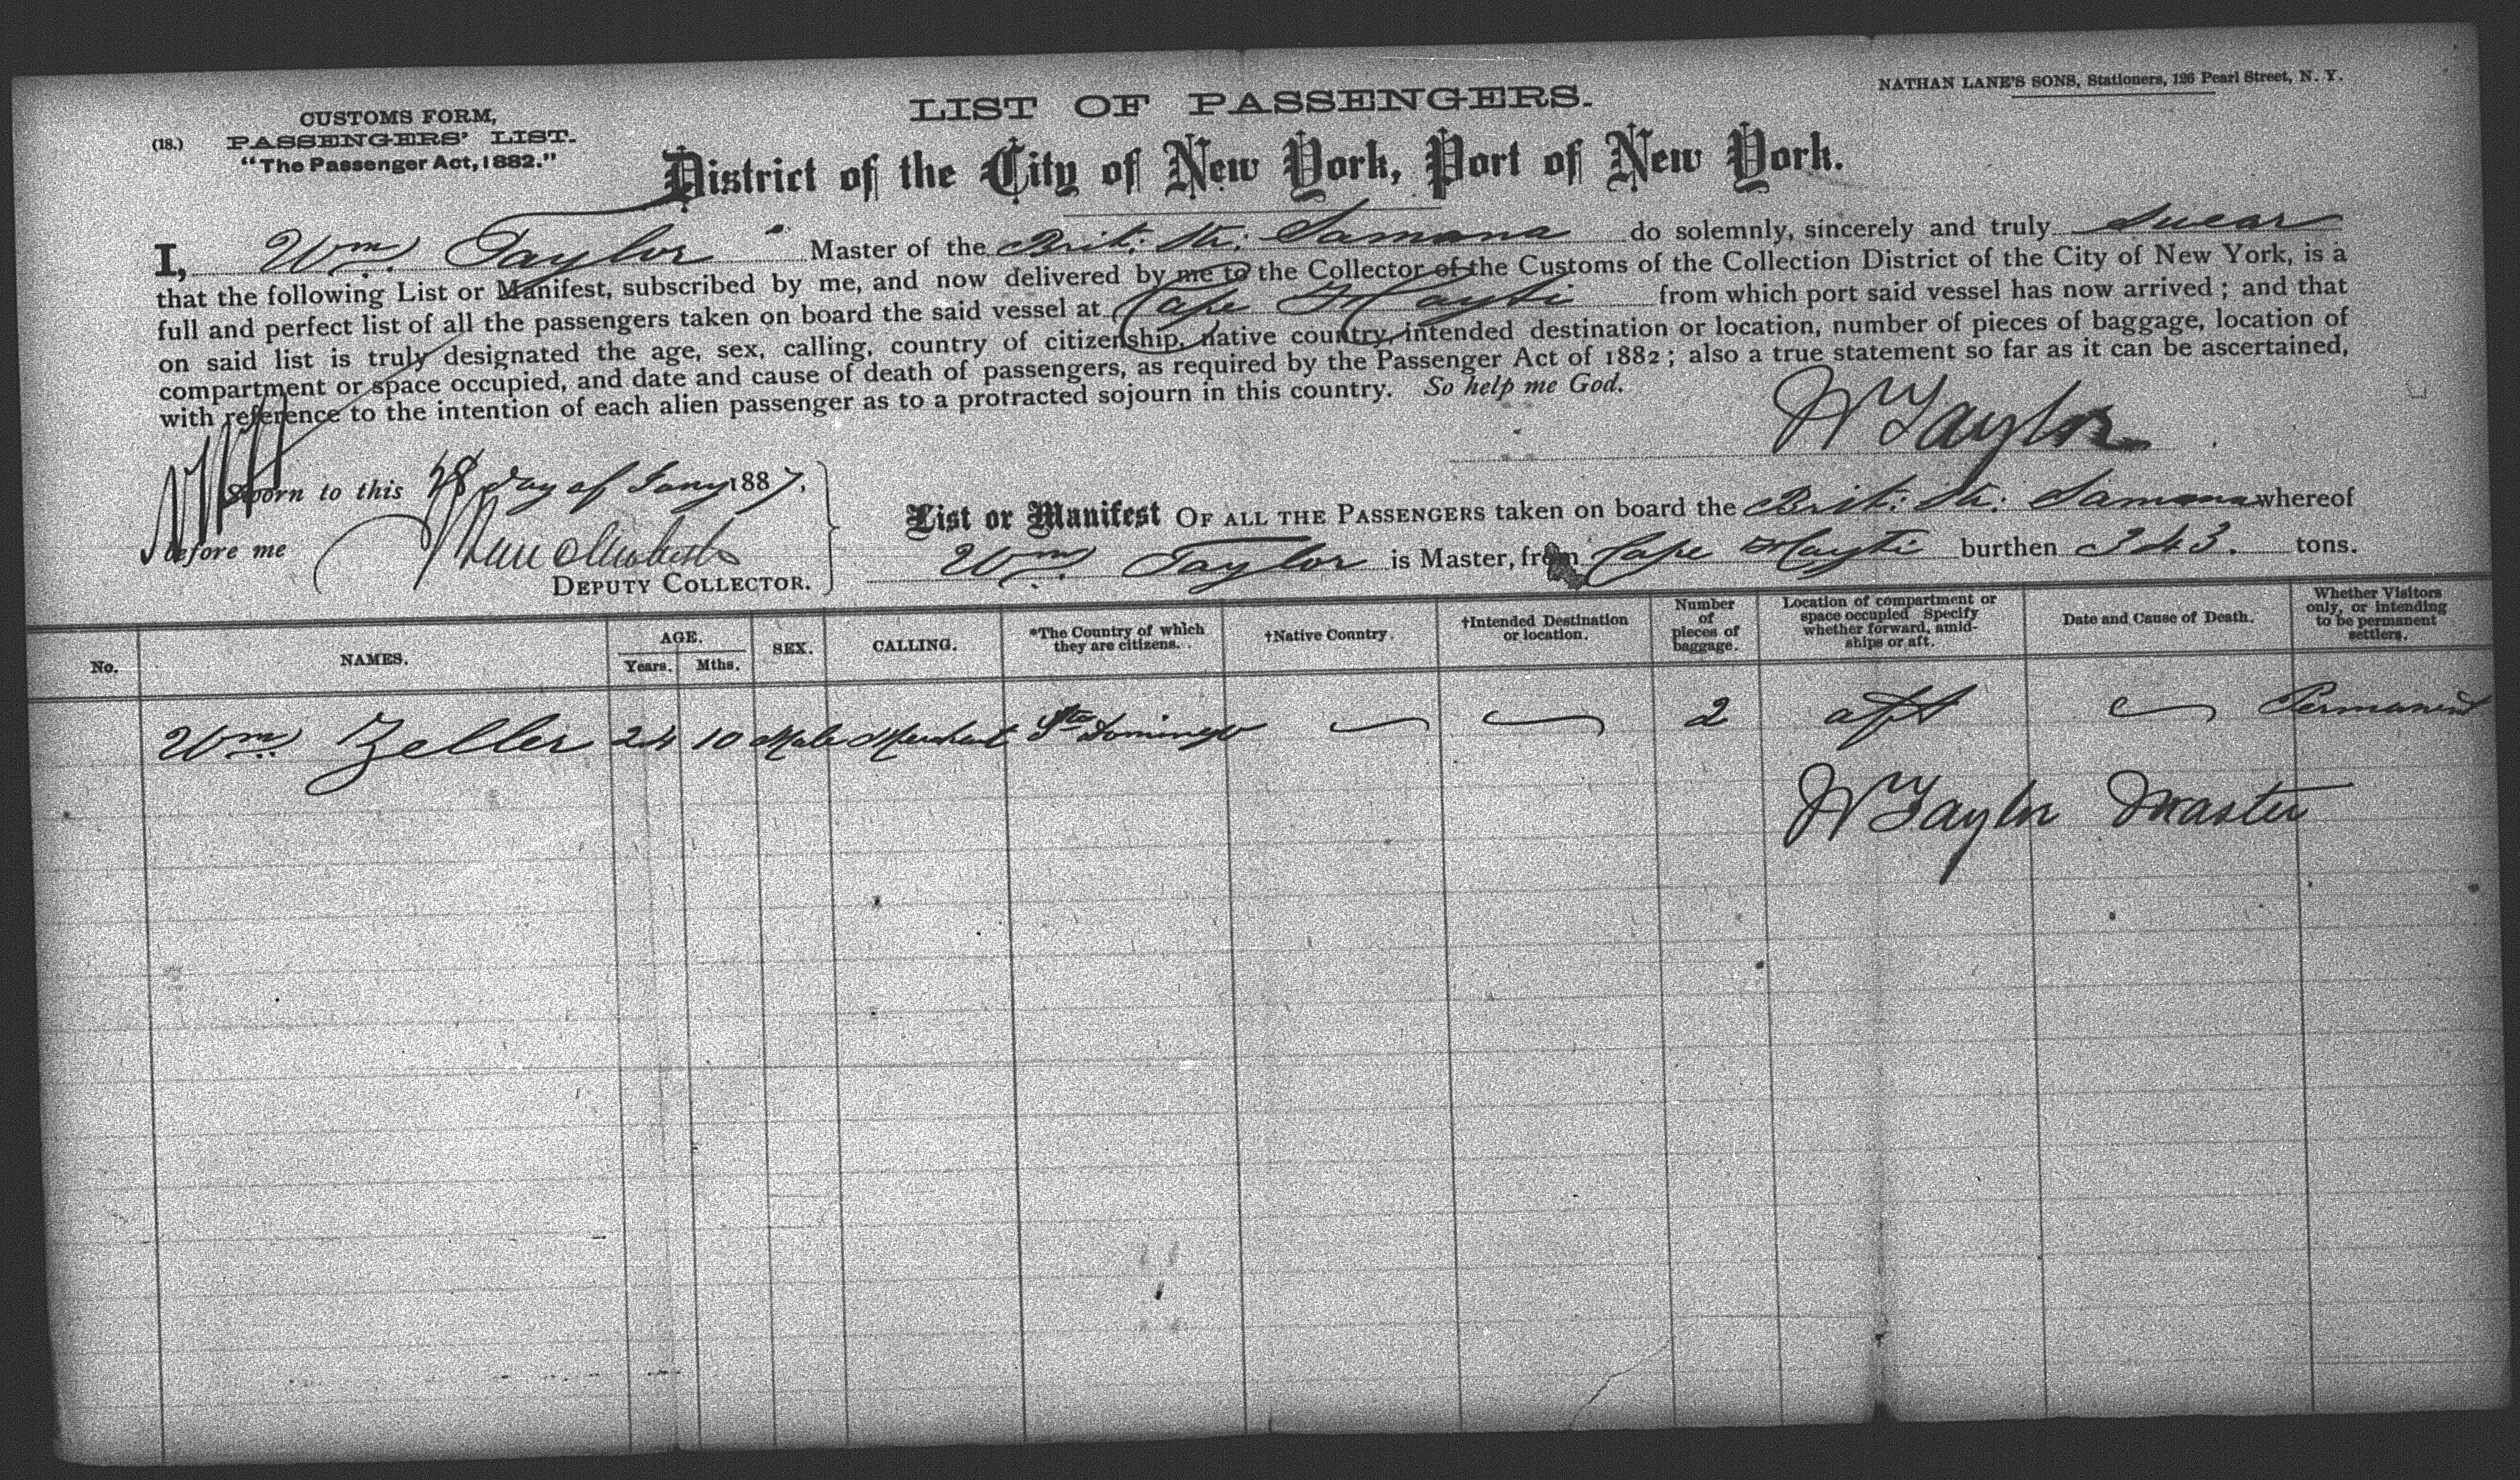 NATHAN LANE'S SONS, Stationers, 126 Pearl Street, N. Y.
(18.)
CUSTOMS FORM,
PASSENGERS' LIST.
"The Passenger Act, 1882."
LIST OF PASSENGERS.
District of the City of New York, Port of New York.
I, Wm. Taylor Master of the Brit. Str. Samana do solemnly, sincerely and truly Swear
that the following List or Manifest, subscribed by me, and now delivered by me to the Collector of the Customs of the Collection District of the City of New York, is a
full and perfect list of all the passengers taken on board the said vessel at Cape Hayti from which port said vessel has now arrived; and that
on said list is truly designated the age, sex, calling, country of citizenship, native country, intended destination or location, number of pieces of baggage, location of
compartment or space occupied, and date and cause of death of passengers, as required by the Passenger Act of 1882; also a true statement so far as it can be ascertained,
with reference to the intention of each alien passenger as to a protracted sojourn in this country. So help me God.
W Taylor
Sworn to this 28 day of Jany 1887,
before me
DEPUTY COLLECTOR.
List or Manifest OF ALL THE PASSENGERS taken on board the Brit. Str. Samana whereof
Wm. Taylor is Master, from Cape Hayti burthen 343. tons.
No. NAMES. AGE. Years. Mths. SEX. CALLING. *The Country of which they are citizens. †Native Country. †Intended Destination or location. Number of pieces of baggage. Location of compartment or space occupied Specify whether forward, amidships or aft. Date and Cause of Death. Whether Visitors only, or intending to be permanent settlers.
Wm. Zeller 24 10 Male Merchant Sto Domingo — — 2 aft — Permanent
W Taylor Master